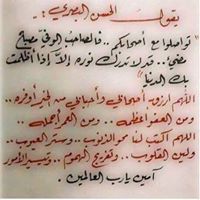 يقول الحسن البصري :
"تواصلوا مع أصحابكم .. فالصاحب الوفيّ مصباح
مضيء .. قد لا تدرك نوره إلا إذا أظلمت
بك الدنيا"
اللهم ارزق أصحابي وأحبابي من الخير أوفره ..
ومن العفو أعظمه .. ومن العمر أجمله ..
اللهم اكتب لنا محو الذنوب .. وستر العيوب ..
ولين القلوب .. وتفريج الهموم .. وتيسير الأمور
آمين يارب العالمين